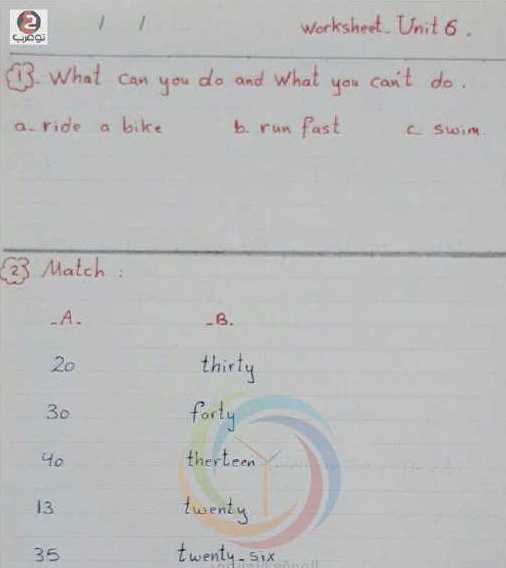 2
توعرب
/ /
Worksheet_ Unit 6.
{1}. What can you do and what you can't do.
a- ride a bike b. run fast c_ swim.
{2} Match:
_A_ _B.
20 thirty
30 forty
40 therteen
13 twenty
35 twenty_six